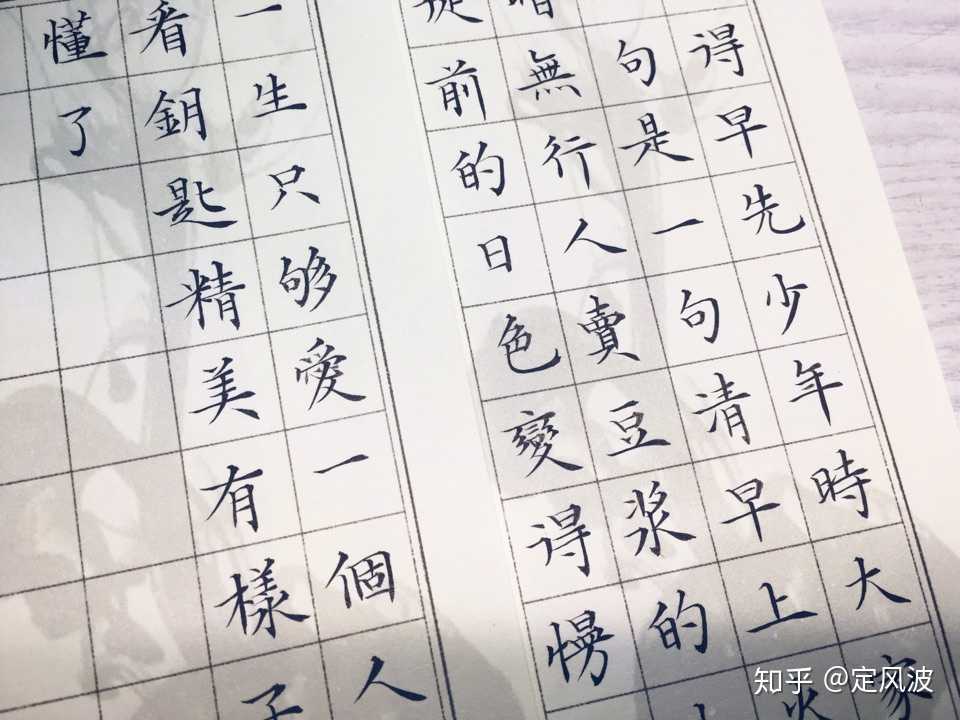 得早先少年時大家
句是一句清早上火
暗無行人賣豆浆的
前的日色變得慢
一生只够愛一個人
看鈅匙精美有樣子
懂了
知乎 @定风波